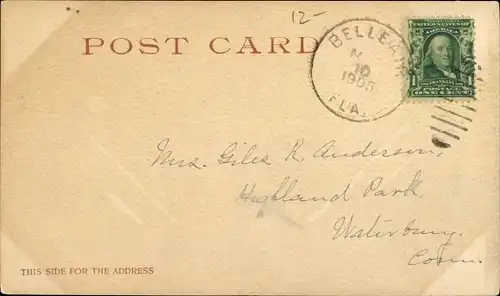 12-
POST CARD
BELLEAIR
M
10
1905
FLA.
UNITED STATES OF
AMERICA
FRANKLIN
POSTAGE
1 ONE CENT 1
Mrs. Giles R. Anderson,
Highland Park.
Waterbury.
Conn.
THIS SIDE FOR THE ADDRESS